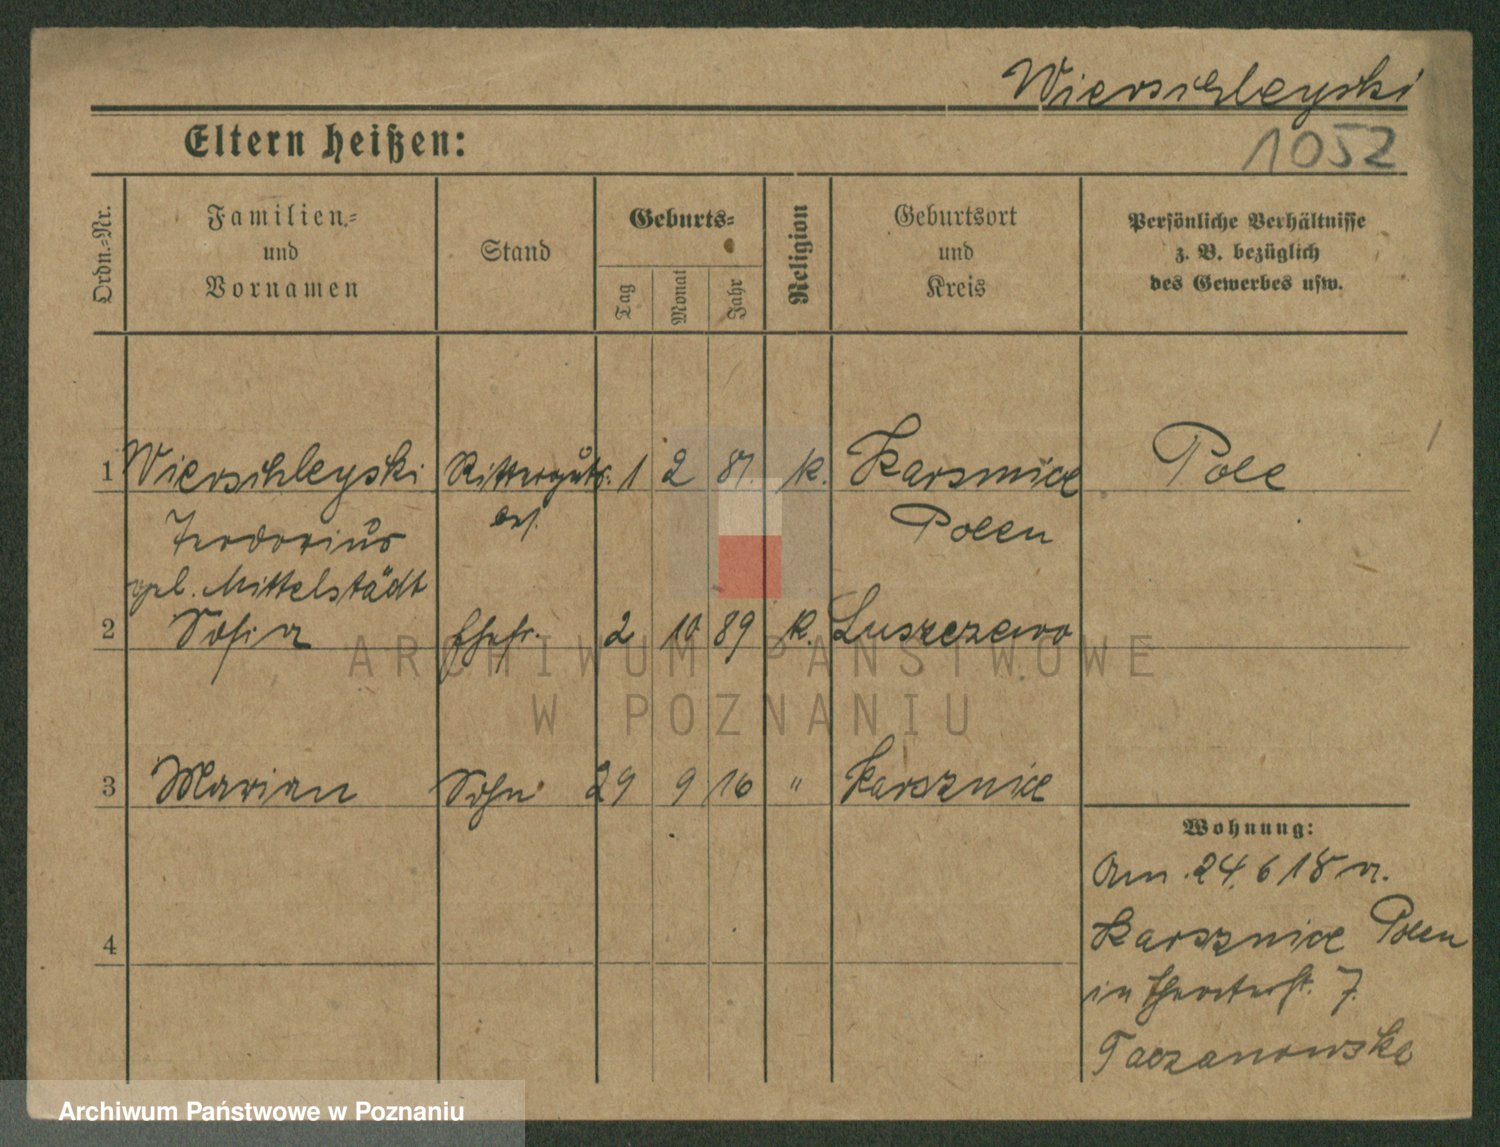 Wierschleyski
1052
Eltern heißen:
Ordn.-Nr.
Familien-
und
Vornamen
Stand
Geburts-
Tag
Monat
Jahr
Religion
Geburtsort
und
Kreis
Persönliche Verhältnisse
z. B. bezüglich
des Gewerbes usw.
1 Wierschleyski Ritterguts. 1 2 87. k. Karsnice Pole
bes. Polen
Teodorius
geb. Mittelstädt
2 Sofia Ehefr. 2 10 89 k. Luszczewo
ARCHIWUM PAŃSTWOWE
W POZNANIU
3 Marian Sohn 29 9 16 " Karsznice
Wohnung:
Am 24.6 18 v.
4
Karsznice Polen
in 7.
Taczanowske
Archiwum Państwowe w Poznaniu